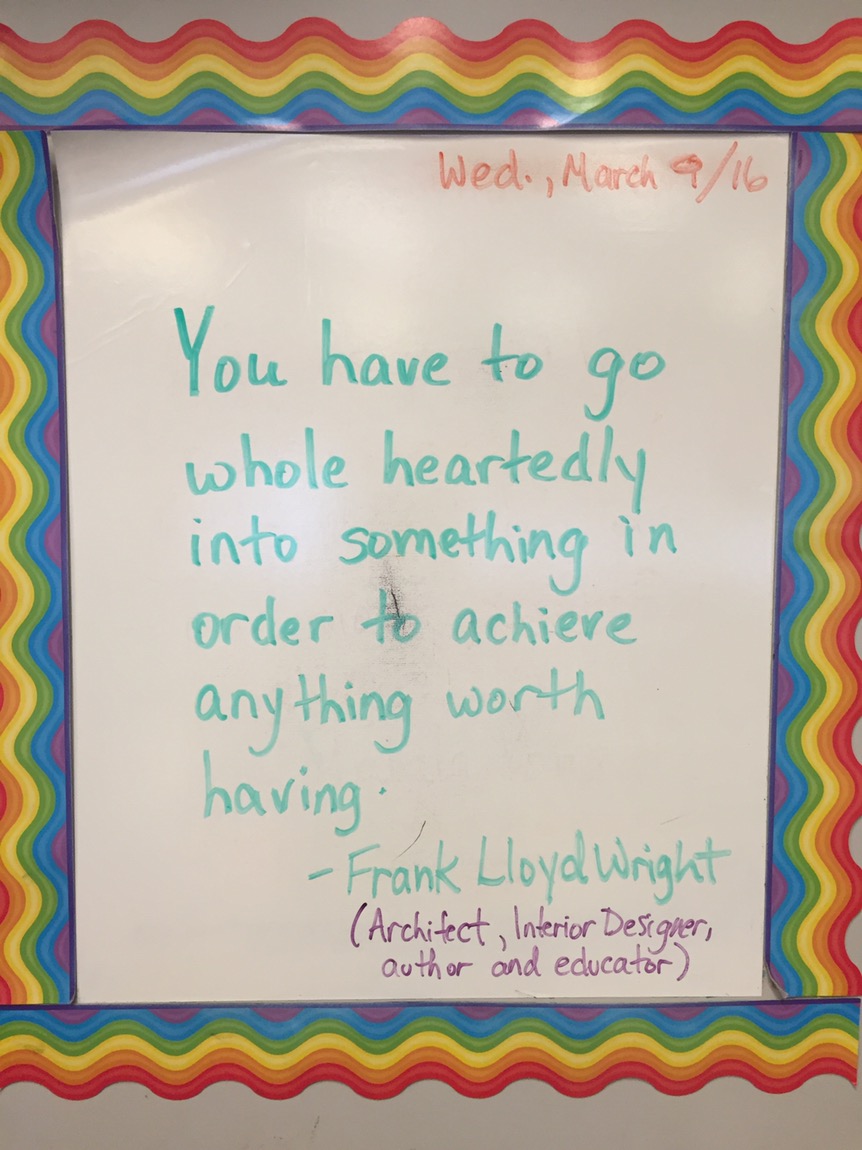 Wed., March 9/16
You have to go
whole heartedly
into something in
order to achieve
anything worth
having.
- Frank Lloyd Wright
(Architect, Interior Designer,
author and educator)